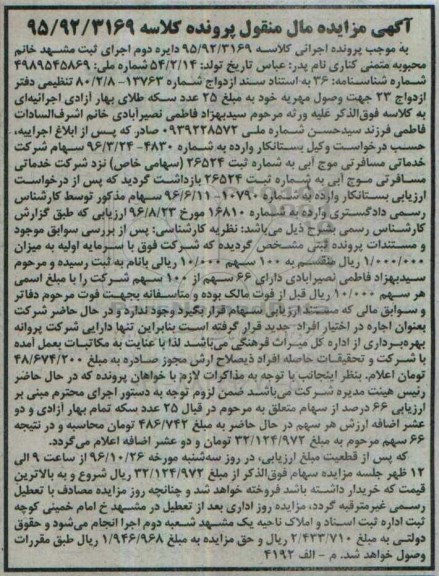 آگهی مزایده مال منقول پرونده کلاسه ۹۵/۹۲/۳۱۶۹
به موجب پرونده اجرائی کلاسه ۹۵/۹۲/۳۱۶۹ دایره دوم اجرای ثبت مشهد خانم
محبوبه متمنی کناری نام پدر: عباس تاریخ تولد: ۵۴/۲/۱۴ شماره ملی: ۴۹۸۹۵۴۵۸۶۹
شماره شناسنامه: ۳۶ به استناد سند ازدواج شماره ۱۳۷۶۳- ۸۰/۲/۸ تنظیمی دفتر
ازدواج ۲۳ جهت وصول مهریه خود به مبلغ ۲۵ عدد سکه طلای بهار آزادی اجرائیه‌ای
به کلاسه فوق‌الذکر علیه ورثه مرحوم سیدبهزاد فاطمی نصیرآبادی خانم اشرف‌السادات
فاطمی فرزند سیدحسن شماره ملی ۰۹۳۹۲۲۸۵۷۲ صادر که پس از ابلاغ اجراییه،
حسب درخواست وکیل بستانکار وارده به شماره ۴۸۳۰- ۹۶/۳/۲۴ سهام شرکت
خدماتی مسافرتی موج آبی به شماره ثبت ۲۶۵۲۴ (سهامی خاص) نزد شرکت خدماتی
مسافرتی موج آبی به شماره ثبت ۲۶۵۲۴ بازداشت گردید که پس از درخواست
ارزیابی بستانکار وارده به شماره ۱۰۷۹۰- ۹۶/۶/۱۱ سهام مذکور توسط کارشناس
رسمی دادگستری وارده به شماره ۱۶۸۱۰ مورخ ۹۶/۸/۲۳ ارزیابی که طبق گزارش
کارشناس رسمی بشرح ذیل می‌باشد: نظریه کارشناسی: پس از بررسی سوابق موجود
و مستندات پرونده ثبتی مشخص گردیده که شرکت فوق با سرمایه اولیه به میزان
۱/۰۰۰/۰۰۰ ریال منقسم به ۱۰۰ سهم ۱۰/۰۰۰ ریالی بانام به ثبت رسیده و مرحوم
سیدبهزاد فاطمی نصیرآبادی دارای ۶۶ سهم از ۱۰۰ سهم شرکت را با مبلغ اسمی
هر سهم ۱۰/۰۰۰ ریال قبل از فوت مالک بوده و متاسفانه بجهت فوت مرحوم دفاتر
و سوابق مالی که مستند ارزیابی سهام قرار بگیرد وجود ندارد و در حال حاضر شرکت
بعنوان اجاره در اختیار افراد جدید قرار گرفته است بنابراین تنها دارایی شرکت پروانه
بهره‌برداری از اداره کل میراث فرهنگی می‌باشد لذا با عنایت به مکاتبات بعمل آمده
با شرکت و تحقیقات حاصله افراد ذیصلاح ارش مجوز صادره به مبلغ ۴۸/۶۷۴/۲۰۰
تومان اعلام. بنظر اینجانب با توجه به مذاکرات لازم با خواهان پرونده که در حال حاضر
رئیس هیئت مدیره شرکت می‌باشد ضمن لزوم توجه به دستور اجرای محترم مبنی بر
ارزیابی ۶۶ درصد از سهام متعلق به مرحوم در قبال ۲۵ عدد سکه تمام بهار آزادی و دو
عشر اضافه ارزش هر سهم در حال حاضر به مبلغ ۴۸۶/۷۴۲ تومان محاسبه و در نتیجه
۶۶ سهم مرحوم به مبلغ ۳۲/۱۲۴/۹۷۲ تومان و دو عشر اضافه اعلام می‌گردد.
که پس از قطعیت مبلغ ارزیابی، در روز سه‌شنبه مورخه ۹۶/۱۰/۲۶ از ساعت ۹ الی
۱۲ ظهر جلسه مزایده سهام فوق‌الذکر از مبلغ ۳۲/۱۲۴/۹۷۲ ریال شروع و به بالاترین
قیمت که خریدار داشته باشد فروخته خواهد شد و چنانچه روز مزایده مصادف با تعطیل
رسمی غیرمترقبه گردد، مزایده روز اداری بعد از تعطیل در مشهد خ امام خمینی کوچه
ثبت اداره ثبت اسناد و املاک ناحیه یک مشهد شعبه دوم اجرا انجام می‌شود و حقوق
دولتی به مبلغ ۲/۴۳۳/۷۱۰ ریال و حق مزایده به مبلغ ۱/۹۴۶/۹۶۸ ریال طبق مقررات
وصول خواهد شد. م - الف ۴۱۹۲